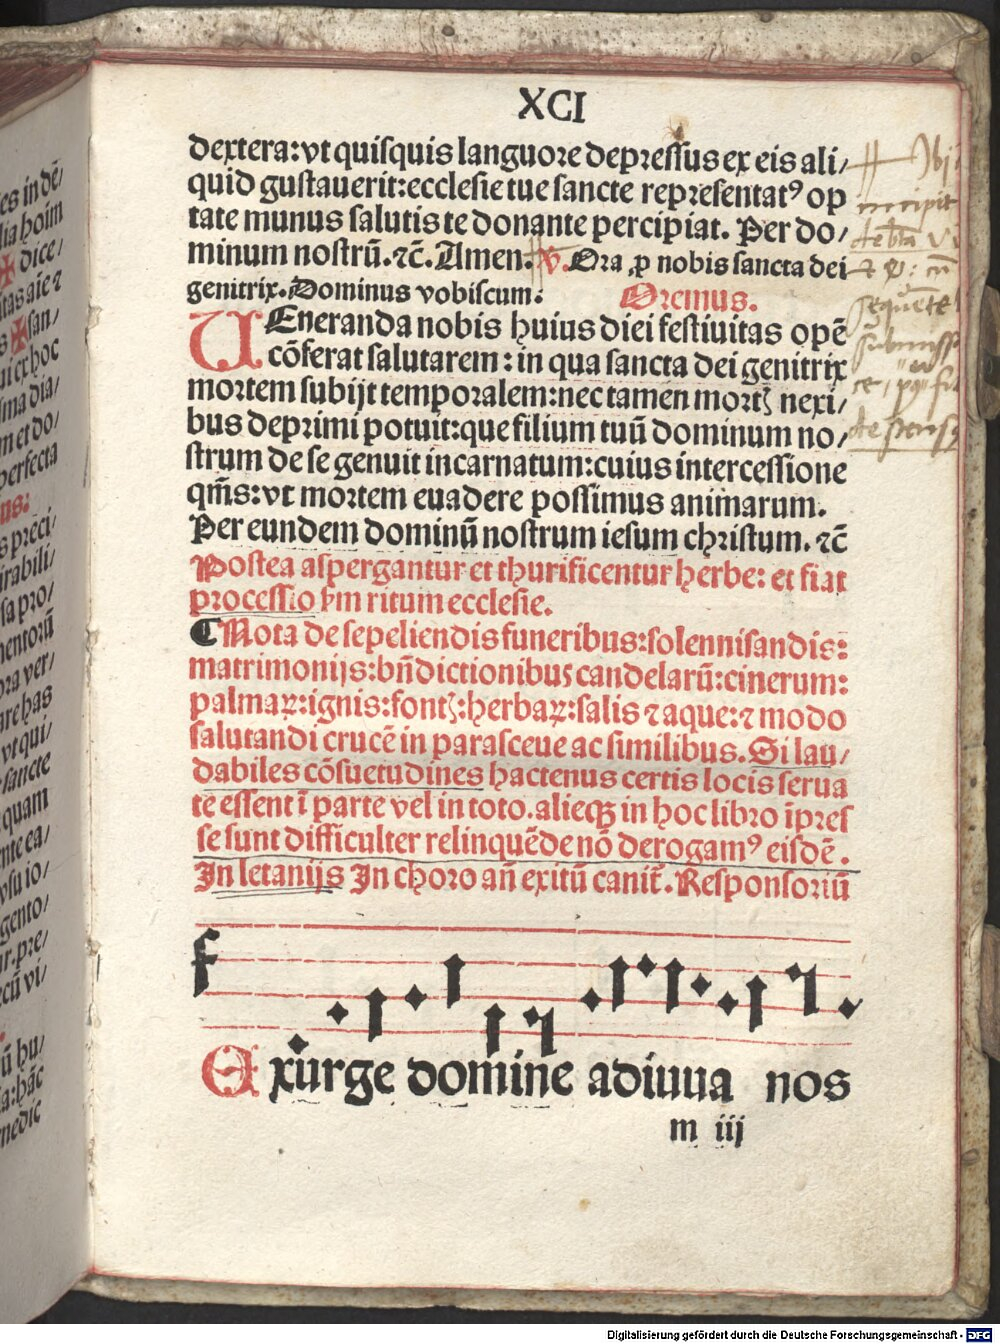 XCI
dextera: vt quisquis languore depressus ex eis ali/
quid gustauerit: ecclesie tue sancte representatꝰ op
tate munus salutis te donante percipiat. Per do/
minum nostrū. ⁊c̄. Amen. ꝟ. Ora ꝓ nobis sancta dei
genitrix. Dominus vobiscum: Oremus.
UEneranda nobis huius diei festiuitas opē
cōferat salutarem: in qua sancta dei genitrix
mortem subijt temporalem: nec tamen mortꝭ nexi/
bus deprimi potuit: que filium tuū dominum no/
strum de se genuit incarnatum: cuius intercessione
qm̄s: vt mortem euadere possimus animarum.
Per eundem dominū nostrum iesum christum. ⁊c̄
Postea aspergantur et thurificentur herbe: et fiat
processio ẜm ritum ecclesie.
¶ Nota de sepeliendis funeribus: solennisandis:
matrimonijs: bn̄dictionibus candelarū: cinerum:
palmaꝝ: ignis: fontꝭ: herbaꝝ: salis ⁊ aque: ⁊ modo
salutandi crucē in parasceue ac similibus. Si lau/
dabiles cōsuetudines hactenus certis locis serua
te essent ī parte vel in toto. alieqꝫ in hoc libro īpres
se sunt difficulter relinquēde nō derogamꝰ eisdē.
In letanijs In choro an̄ exitū canit̄. Responsoriū
Exurge domine adiuua nos
m iij
incipit
sequente
es in dē/
lia hoim
✠ dice/
itas aīe ⁊
s ✠ san/
ut ex hoc
sma dia/
m et do/
perfecta
us:
s prēci/
irabili/
sa pro/
mentorū
ora ver/
are has
vt qui/
sancte
quam
nte ea/
vsu io/
gento/
r. pre/
ecū vi/
ū hu/
a: hāc
nedic
Digitalisierung gefördert durch die Deutsche Forschungsgemeinschaft - DFG